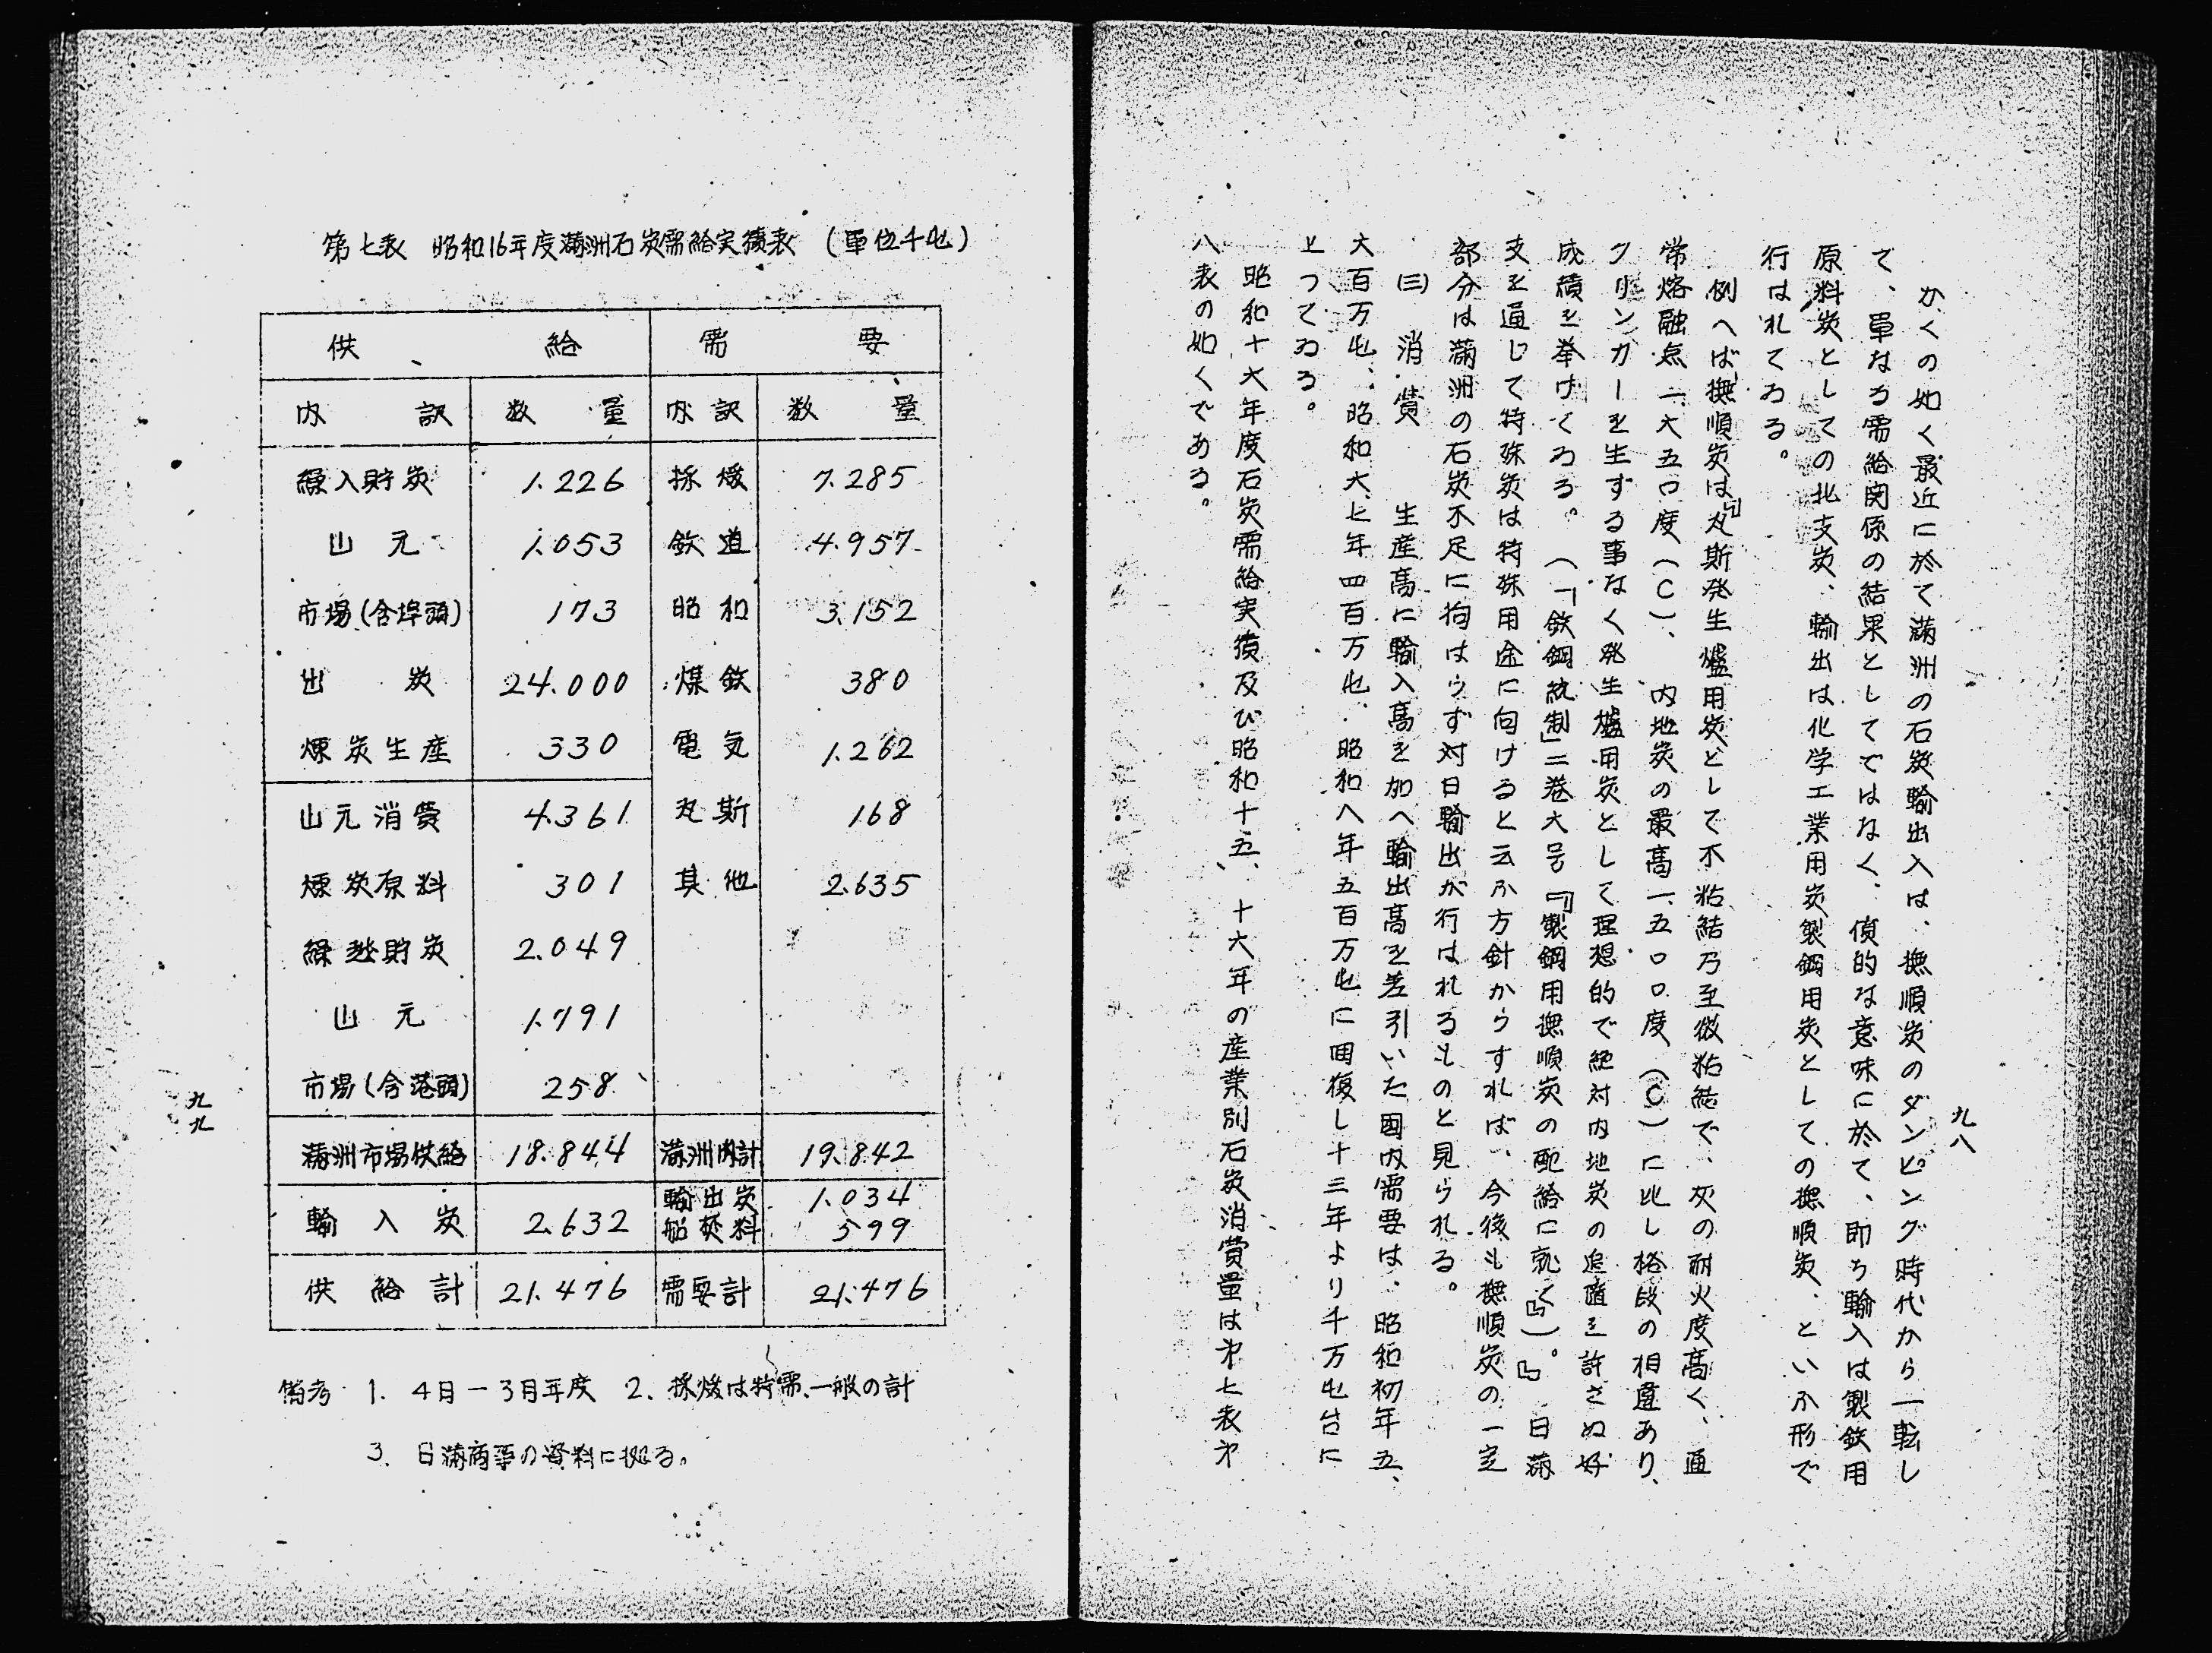 九八
かくの如く最近に於て満洲の石炭輸出入は、撫順炭のダンピング時代から一転し
て、単なる需給関係の結果としてではなく、価的な意味に於て、即ち輸入は製鉄用
原料炭としての北支炭、輸出は化学工業用炭製鋼用炭としての撫順炭、といふ形で
行はれてゐる。
例へば「撫順炭は『瓦斯発生爐用炭として不粘結乃至微粘結で、灰の耐火度高く、通
常熔融点一、六五〇度(C)、内地炭の最高一、五〇〇度(C)に比し格段の相違あり、
クリンカーを生ずる事なく発生爐用炭として理想的で絶対内地炭の追随を許さぬ好
成績を挙げてゐる。(「鉄鋼統制」二巻六号『製鋼用撫順炭の配給に就て』)。』日満
支を通じて特殊炭は特殊用途に向けると云ふ方針からすれば、今後も撫順炭の一定
部分は満洲の石炭不足に拘はらず対日輸出が行はれるものと見られる。
(三) 消費 生産高に輸入高を加へ輸出高を差引いた国内需要は、昭和初年五、
六百万屯、昭和六、七年四百万屯、昭和八年五百万屯に回復し十三年より千万屯台に
上つてゐる。
昭和十六年度石炭需給実績及び昭和十五、十六年の産業別石炭消費量は第七表第
八表の如くである。
第七表 昭和16年度満洲石炭需給実績表 (単位千屯)
供給 需要
内訳 数量 内訳 数量
繰入貯炭 1.226 採煖 7.285
山元 1.053 鉄道 4.957
市場(含埠頭) 173 昭和 3.152
出炭 24.000 煤鉄 380
煉炭生産 330 電気 1.262
山元消費 4.361 瓦斯 168
煉炭原料 301 其他 2.635
繰越貯炭 2.049
山元 1.791
市場(含港頭) 258
満洲市場供給 18.844 満洲内計 19.842
輸入炭 2.632 輸出炭 1.034
船焚料 599
供給計 21.476 需要計 21.476
備考 1. 4月-3月年度 2. 採煖は特需、一般の計
3. 日満商事の資料に拠る。
九九